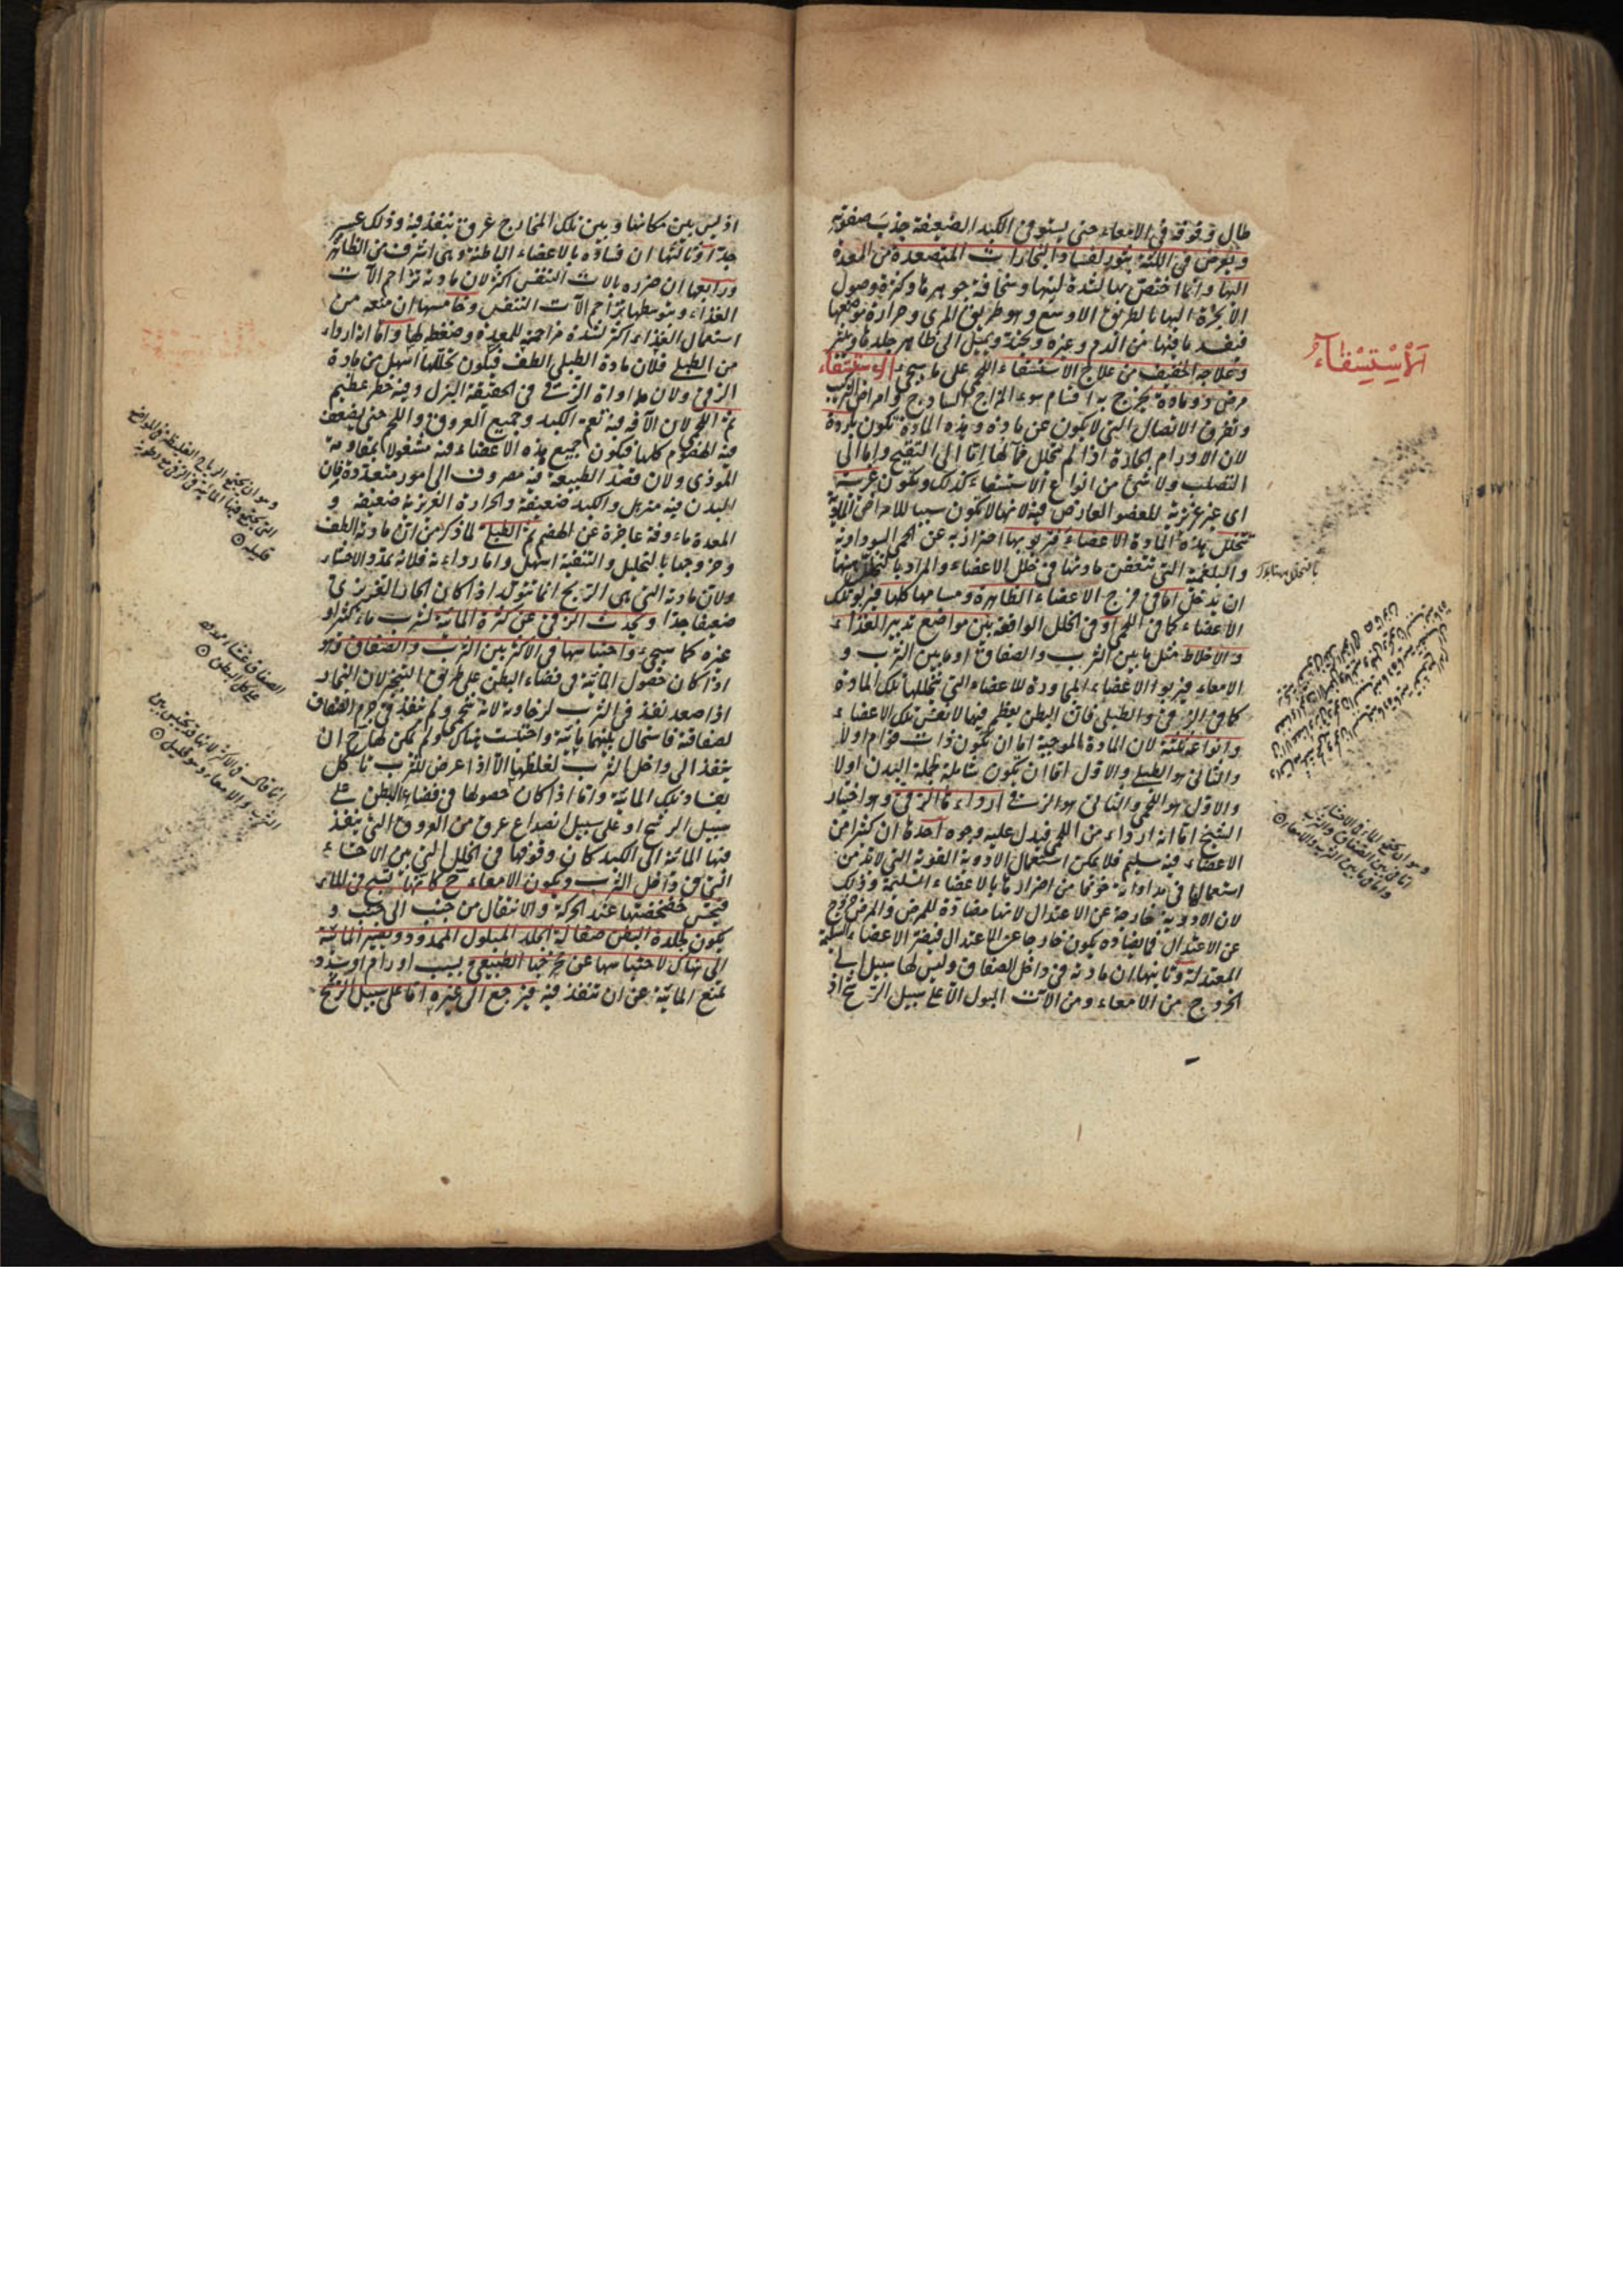 طال وقوفه في الامعاء حتى يستوفى الكبد الضعيفة جذب صفوته
ويعرض في اللثة بثور لفساد البخارات المتصعدة من المعدة
اليها وانما اختص بها لشدة لينها وسخافة جوهرها وكثرة وصول
الابخرة اليها بالطريق الاوسع وهو طريق المرى وحرارة موضعها
فيفسد ما فيها من الدم وغيره ويميل الى ظاهر جلدها ويبثر
وعلاجه الخفيف من علاج الاستسقاء اللحمى على ما سيجئ الاستسقاء
مرض ذو مادة يخرج به اقسام سوء المزاج الساذج وامراض التركيب
وتفرق الاتصال التي لا يكون عن مادة وهذه المادة تكون باردة
لان الاورام الحادة اذا لم تتحلل فمآلها اما الى التقيح واما الى
التصلب ولا شئ من انواع الاستسقاء كذلك ويكون غريبة
اى غير غريزية للعضو العارض فيه لانها لا تكون سببا للامراض المادية
تتخلل هذه المادة الاعضاء فتربو بها احتراز به عن الحمى السوداوية
والبلغمية التي تتعفن مادتها في خلل الاعضاء والمراد بالتخلل ههنا
ان يدخل اما في فرج الاعضاء الظاهرة ومسامها كلها فيربو تلك
الاعضاء كما في اللحمى او في الخلل الواقعة بين مواضع تدبير الغذاء
والاخلاط مثل ما بين الثرب والصفاق او ما بين الثرب و
الامعاء فيربوا الاعضاء المجاورة للاعضاء التي تتخللها تلك المادة
كما في الزقى والطبلى فان البطن يعظم فيها لا نفس تلك الاعضاء
وانواعه ثلثة لان المادة الموجبة اما ان يكون ذات قوام اولا
والثانى هو الطبلى والاول اما ان يكون شاملة لجملة البدن اولا
والاول هو اللحمى والثانى هو الزقى اردءها الزقى وهو اختيار
الشيخ اما انه اردء من اللحمى فيدل عليه وجوه احدها ان كثيرا من
الاعضاء فيه سليم فلا يمكن استعمال الادوية القوية التي لا بد من
استعمالها في مداواته خوفا من اضرارها بالاعضاء السليمة وذلك
لان الادوية خارجة عن الاعتدال لانها مضادة للمرض والمرض خروج
عن الاعتدال فما يضاده يكون خارجا عن الاعتدال فيضر الاعضاء السليمة
المعتدلة وثانيها ان مادته في داخل الصفاق وليس لها سبيل الى
الخروج من الامعاء ومن الآت البول الا على سبيل الرشح اذ
اَلْاِسْتِسْقَاءُ
وهو ان يجتمع الماء في الاحشاء
اما في بين الصفاق والثرب
واما في ما بين الثرب والامعاء
اذ ليس بين مكانها وبين تلك المخارج عرق تنفذ فيه وذلك عسر
جدا وثالثها ان فساده بالاعضاء الباطنة وهى اشرف من الظاهر
ورابعها ان ضرره بالات التنفس اكثر لان مادته تزاحم الآت
الغذاء وبتوسطها تزاحم الآت التنفس وخامسها ان منعه من
استعمال الغذاء اكثر لشدة مزاحمة للمعدة وضغط لها واما انه اردء
من الطبلى فلان مادة الطبلى الطف فيكون تحللها اسهل من مادة
الزقى ولان مداواة الزقى في الحقيقة البزل وفيه خطر عظيم
ثم اللحمى لان الآفة فيه تعم الكبد وجميع العروق واللحم حتى يضعف
فيه الهضوم كلها فيكون جميع هذه الاعضاء فيه مشغولا بمقاومة
الموذى ولان قصد الطبيعة فيه مصروف الى امور متعددة فان
البدن فيه متزهل والكبد ضعيفة والحرارة الغريزية ضعيفة و
المعدة ماءوفة عاجزة عن الهضم ثم الطبلى لما ذكر من ان مادته الطف
وخروجها بالتحليل والتنفية اسهل واما رداءته فلانه يمدد الاحشاء
ولان مادته التي هى الريح انما تتولد اذا كان الحار الغريزى
ضعيفا جدا ويحدث الزقى عن كثرة المائية لشرب ماء كثير او
غيره كما سيجئ واحتباسها في الاكثر بين الثرب والصفاق وهو
اذا كان حصول المائية في فضاء البطن على طريق التبخر لان البخار
اذا صعد نفذ في الثرب لرخاوته لانه شحمى ولم ينفذ في جرم الصفاق
لصفاقته فاستحال بينهما مائية واحتبست هناك ولم يكن لها ح ان
ينفذ الى داخل الثرب لغلظها الا اذا عرض للثرب تاكل
بفساد تلك المائية واما اذا كان حصولها في فضاء البطن على
سبيل الرشح او على سبيل انصداع عرق من العروق التي ينفذ
فيها المائية الى الكبد كان وقوفها في الخلل التي بين الاحشاء
التي في داخل الثرب ويكون الامعاء ح كانها تسبح في الماء
فيحس خضخضتها عند الحركة والانتقال من جنب الى جنب و
يكون لجلدة البطن صقالة الجلد المبلول الممدود ويصير المائية
الى هناك لاحتباسها عن مخرجها الطبيعى بسبب اورام او سدد
تمنع المائية عن ان تنفذ فيه فيرجع الى غيره اما على سبيل الرشح
وهو ان يجتمع الرياح الغليظة في المواضع
التي يجتمع فيها المائية في الزقى مع رطوبة
قليلة
الصفاق غشاء ممدود
على كل البطن
انما قال في الاكثر لانها قد يحتبس بين
الثرب والامعاء وهو قليل